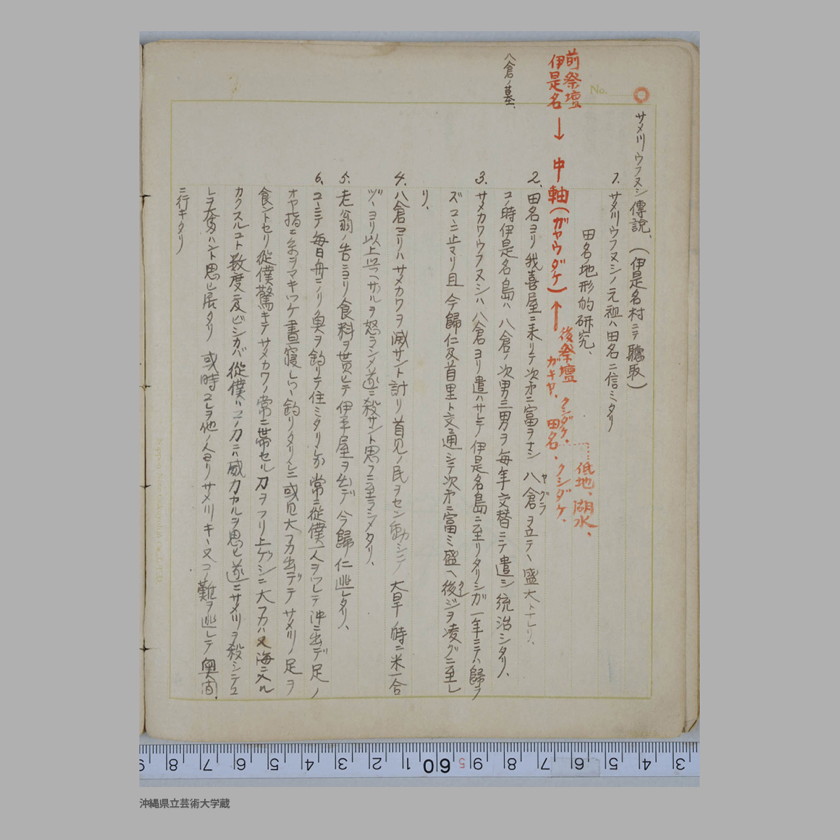 No.
サメ川ウフヌシ傳説、(伊是名村ニテ聽取)
1. サメ川ウフヌシノ元祖ハ田名ニ住ミタリ
田名地形的研究、
低地、湖水、
後祭壇 クシダケ、
ガキヤ、田名、クシダケ、
前祭壇
伊是名 → 中軸(ガヤウダケ) ←
八倉ノ墓、
2. 田名ヨリ我喜屋ニ來リテ次第ニ富ヲナシ 八倉ヲ立テヽ盛大トナレリ、
ヤグラ
コノ時伊是名島ハ 八倉ノ次男三男ヲ毎年交替ニテ遣シ統治シタリ、
3. サメカワウフヌシハ八倉ヨリ遣ハサレテ伊是名島ニ至リタリシガ一年ニテハ歸ラ
ズコヽニ止マリ且 今歸仁及首里ト交通シテ次第ニ富ミ盛ヘ後ジヲ凌グニ至レ
リ、
4. 八倉ヨリハサメカワヲ滅サント計リ首見ノ民ヲセン動シテ 大旱ノ時ニ米一合
ヅヽヨリ以上与ヘサルヲ怒ラシメ遂ニ殺サント思フニ至ラシメタリ、
5. 老翁ノ告ニヨリ食料ヲ貰ヒテ伊平屋ヲ出デ今歸仁ニ逃レタリ、
6. コヽニテ毎日舟ニノリ魚ヲ釣リテ住ミタリシガ常ニ從僕一人ヲツレテ沖ニ出デ足ノ
オヤ指ニ糸ヲマキツケ晝寢シツヽ釣リタリシニ或日大フカ出デテサメ川ノ足ヲ
食ントセリ從僕驚キテサメカワノ常ニ帶セル刀ヲフリ上ゲシニ大フカハ又海ニ入ル
カクスルコト数度ニ及ビシカバ從僕ハコノ刀ニハ威力アルヲ思ヒ遂ニサメ川ヲ殺シテコ
レヲ奪ハント思ヒ居タリ 或時コレヲ他ノ人ヨリサメ川キヽ又コノ難ヲ逃レテ與那
ニ行キタリ
9 8 7 6 5 4 3 2 1 60 9 8 7 6 5 4 3
沖縄県立芸術大学蔵